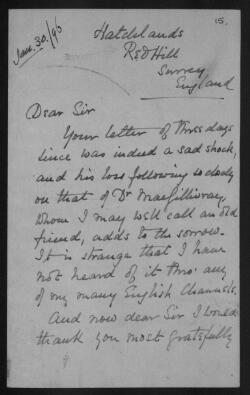 15.
Jan. 30./95
Hatchlands
Red Hill
Surrey
England
Dear Sir
Your letter of three days
since was indeed a sad shock,
and his loss following so closely
on that of Dr MacGillivray
whom I may well call an old
friend, adds to the sorrow.
It is strange that I have
not heard of it thro' any
of my many English Channels.
And now dear Sir I would
thank you most gratefully